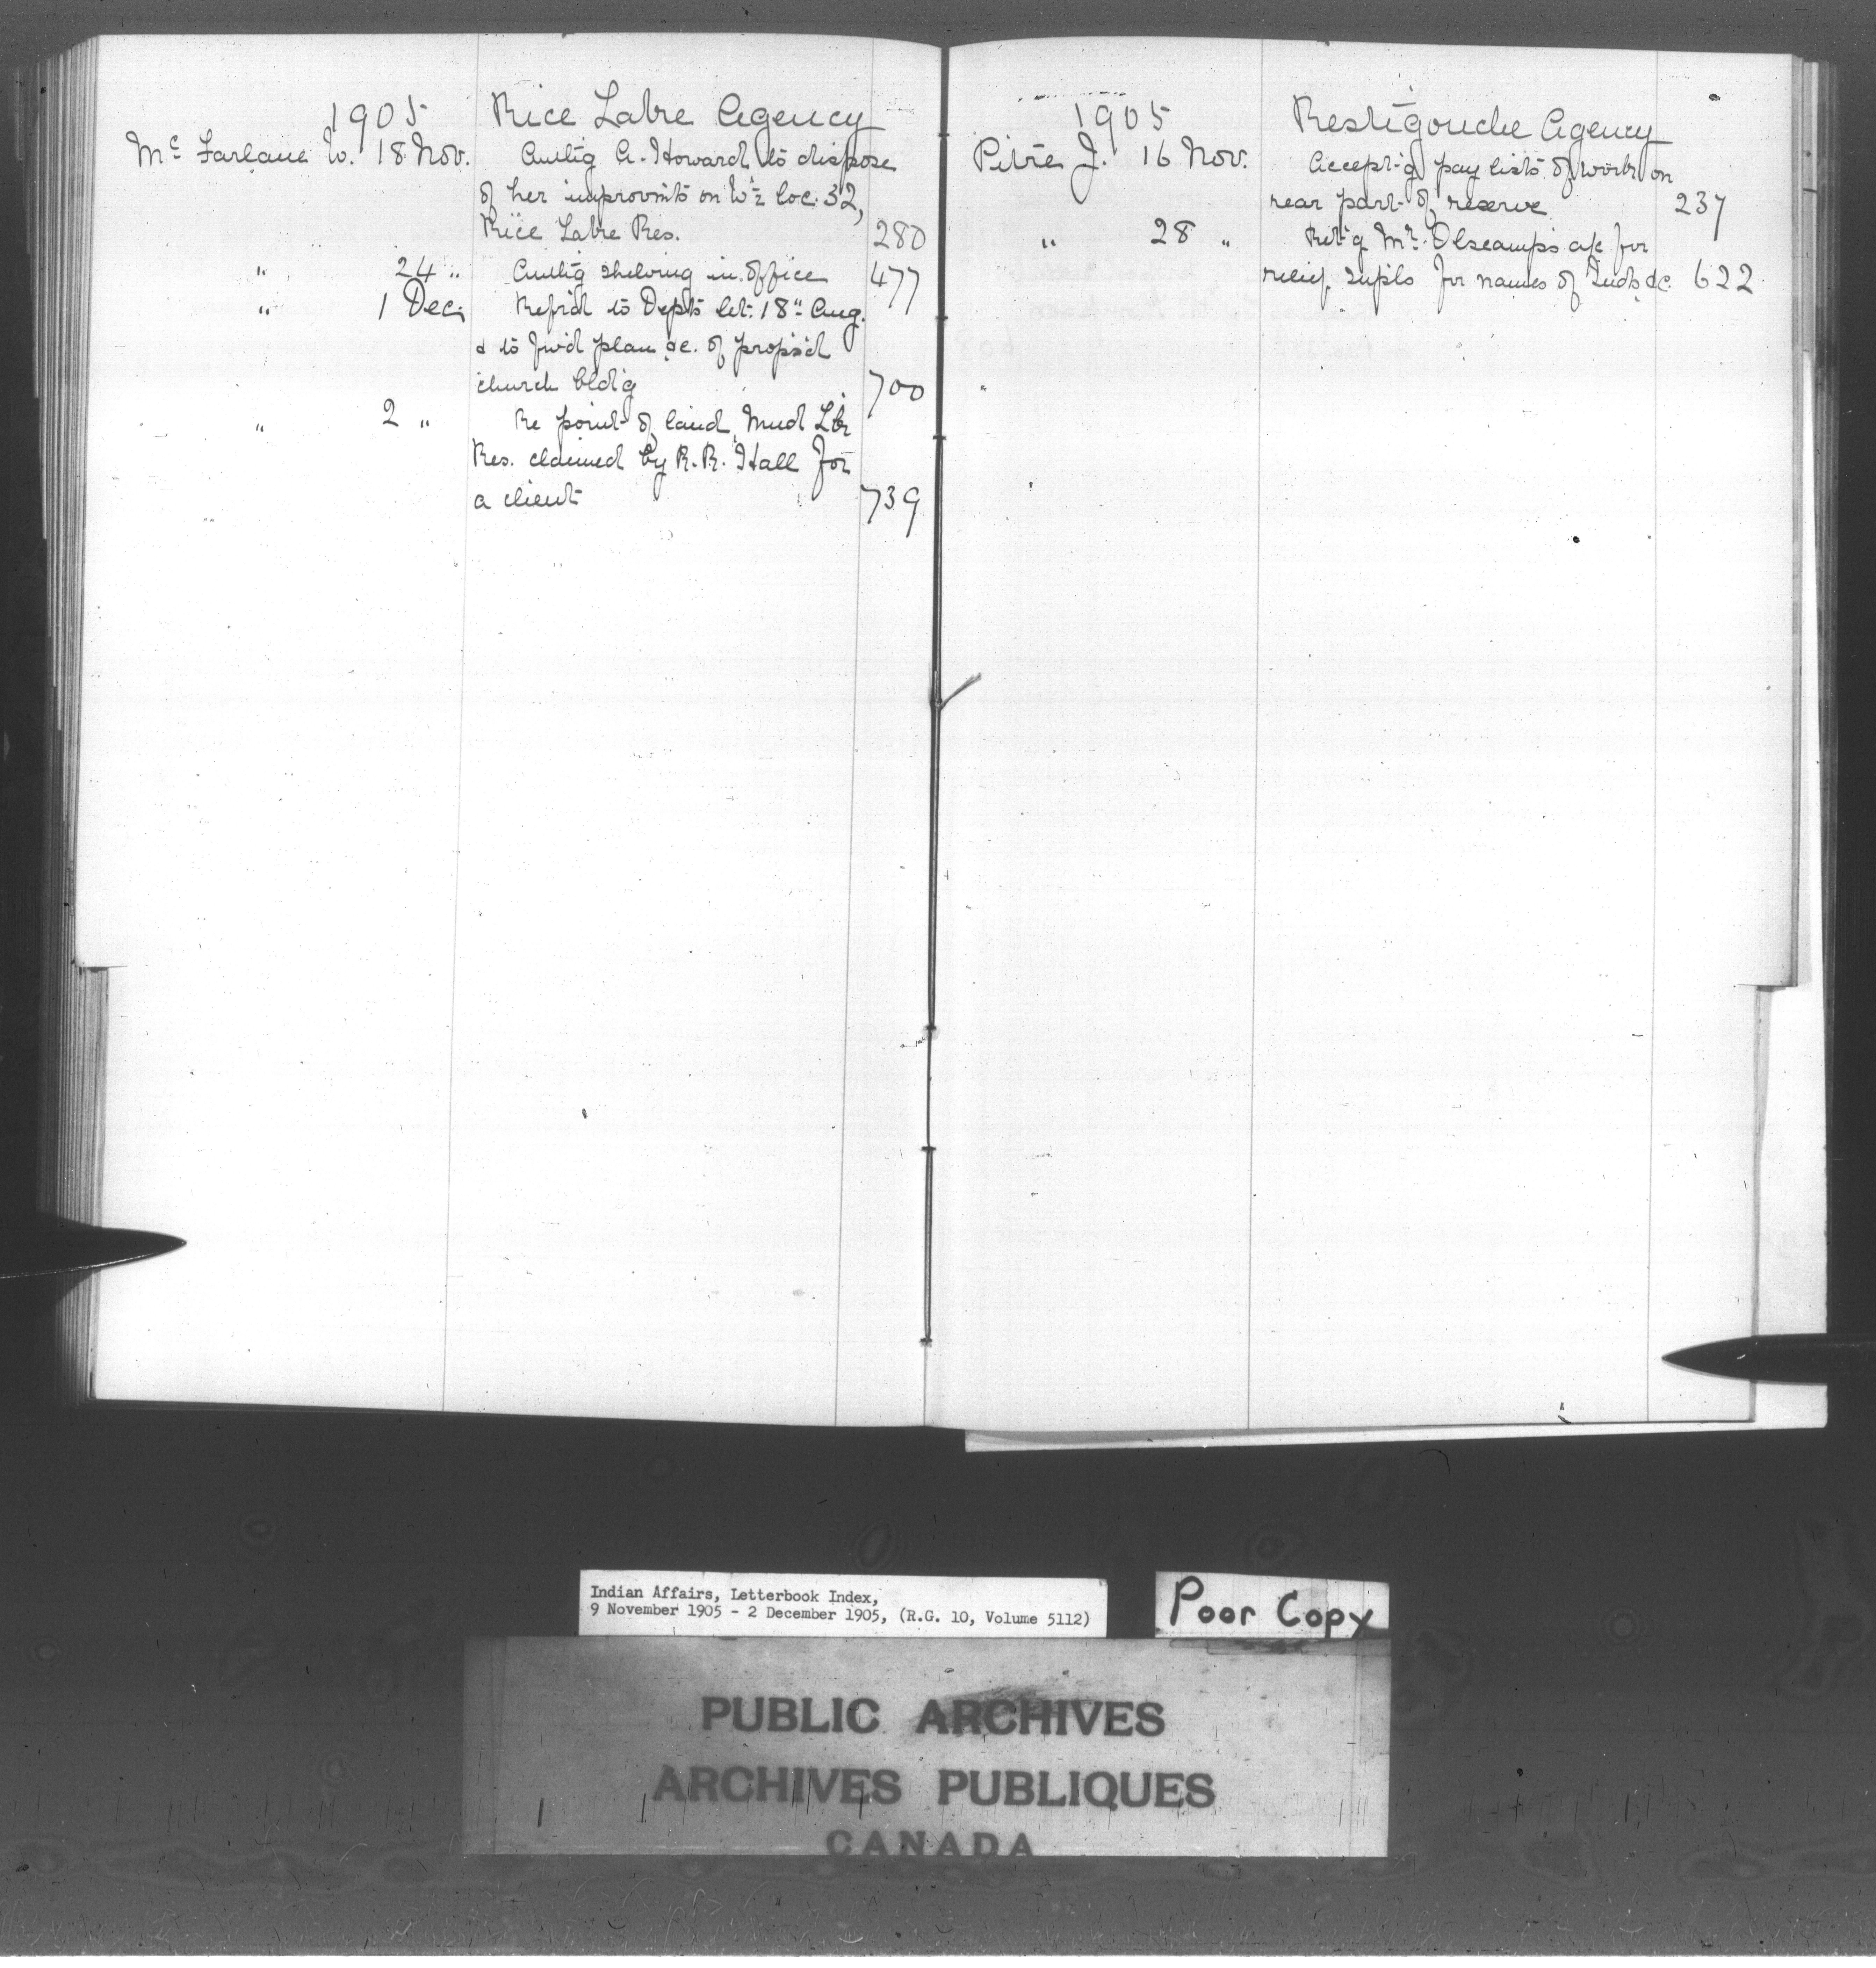 1905 Rice Lake Agency
Mc Farlane W. 18 Nov. Authg A. Howard to dispose
of her improvmts on W½ loc. 32,
Rice Lake Res. 280
" 24 " Authg shelving in office 477
" 1 Dec. Refrd to Depts let. 18" Aug.
& to fwd plan &c. of propsd
church bldg 700
" 2 " Re point of land, Mud Lk
Res. claimed by R. R. Hall for
a client 739
1905 Restigouche Agency
Pitre J. 16 Nov. Acceptg pay lists of work on
rear part of reserve 237
" 28 " Retg Mr. Olscamps a/c for
relief supls for names of Inds &c. 622
Indian Affairs, Letterbook Index,
9 November 1905 - 2 December 1905, (R.G. 10, Volume 5112)
Poor Copy
PUBLIC ARCHIVES
ARCHIVES PUBLIQUES
CANADA